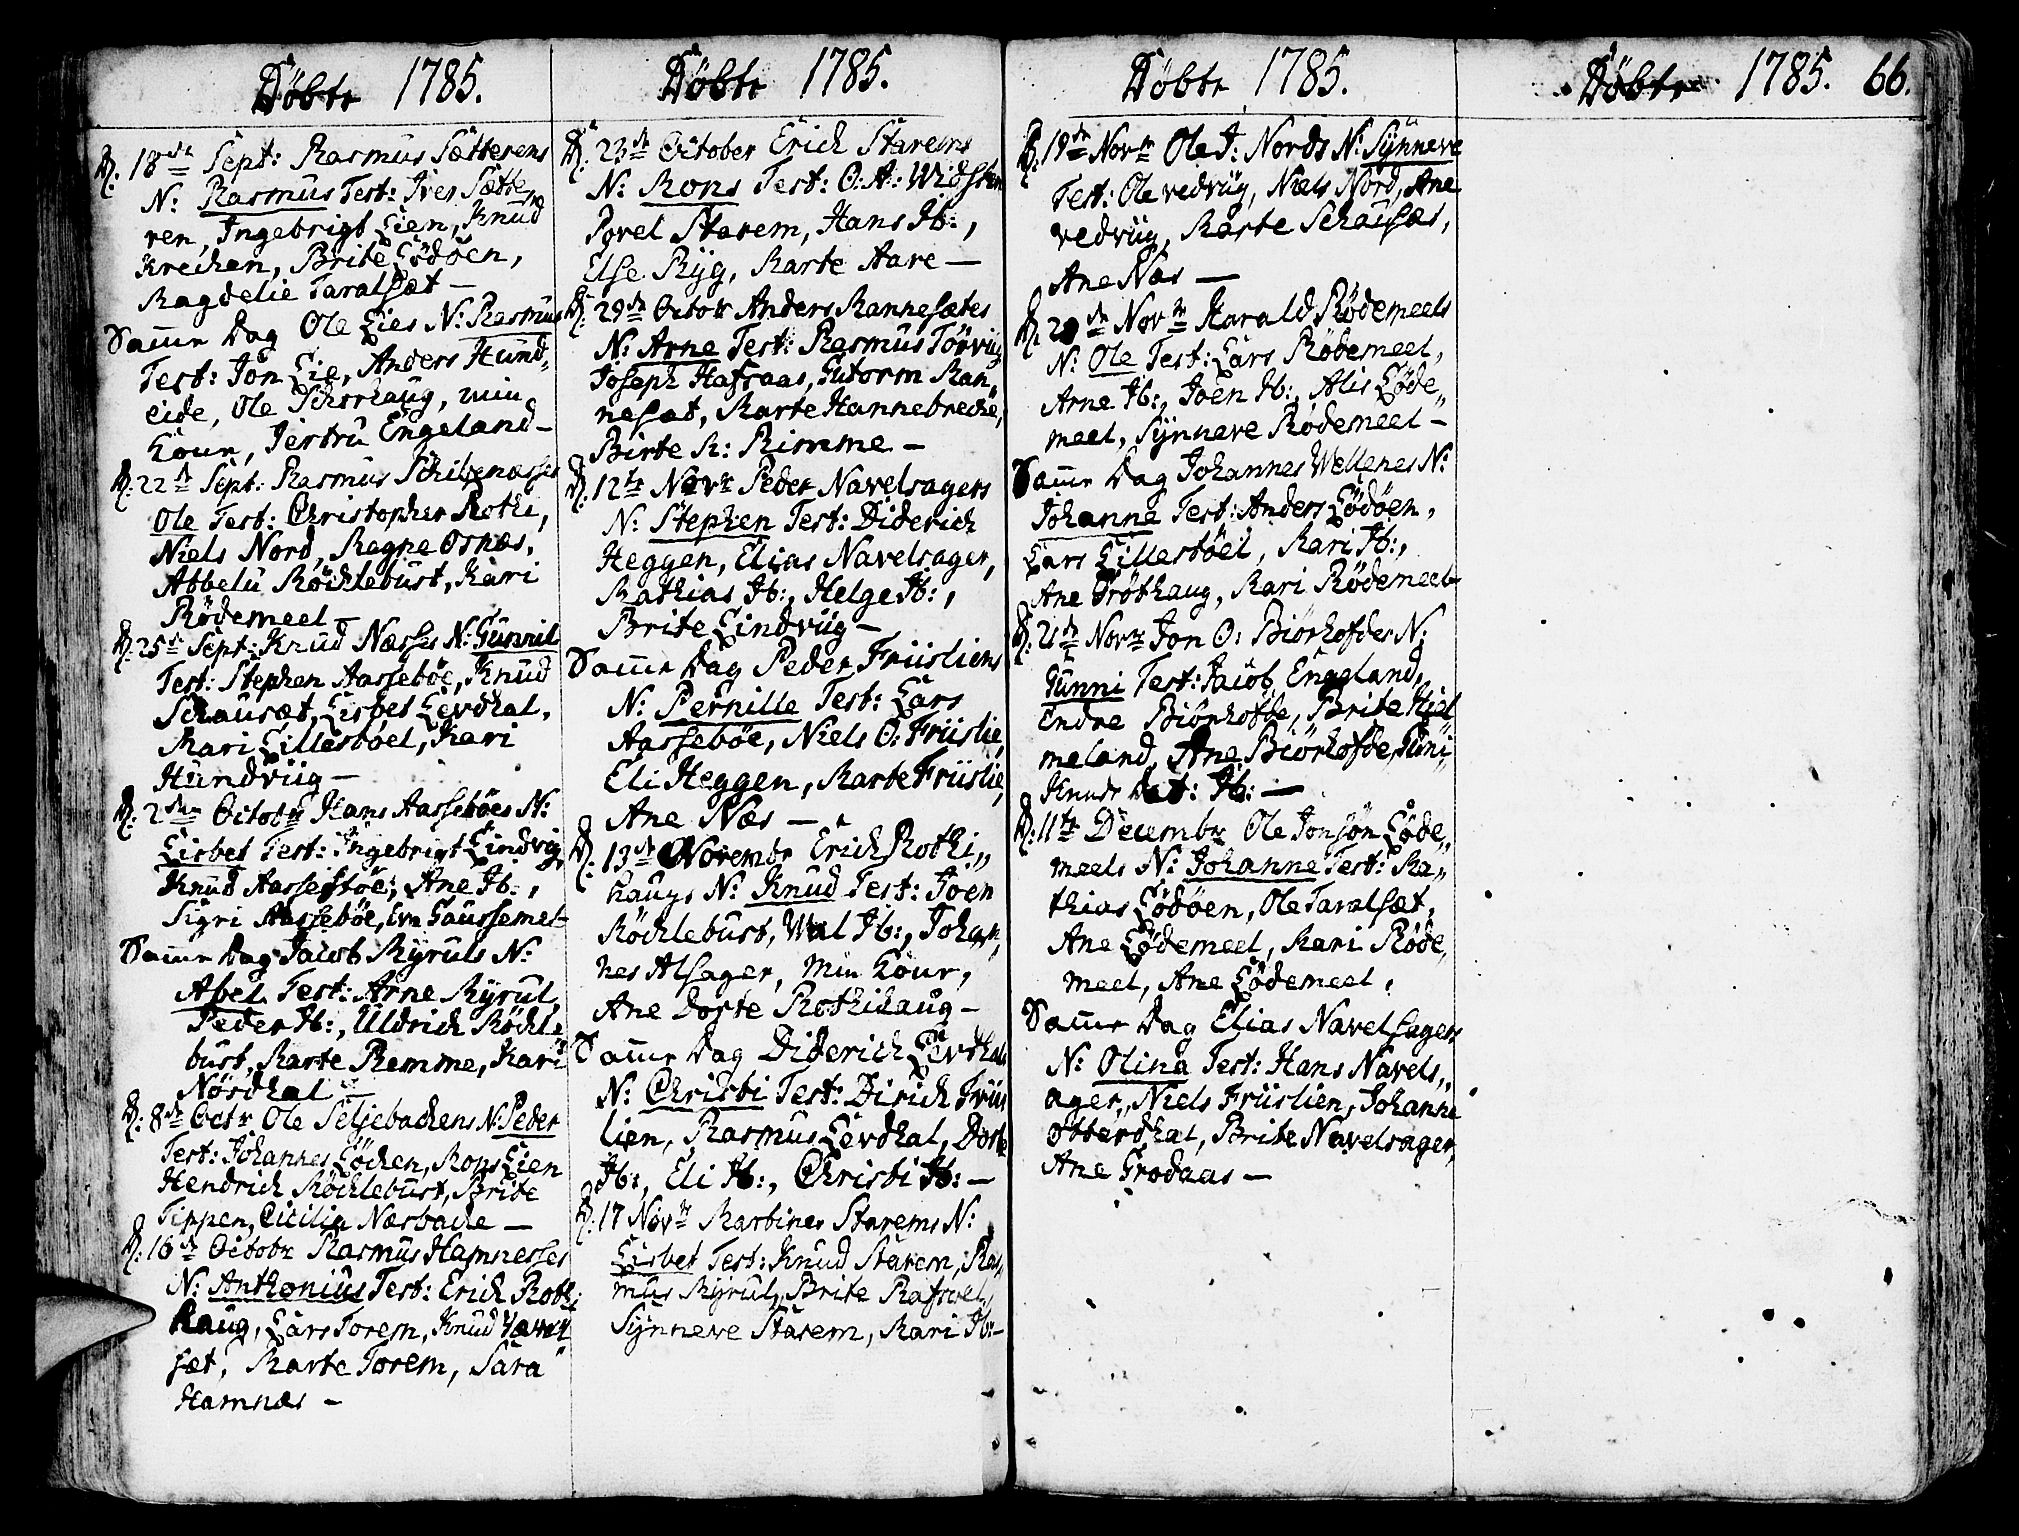 Döbte 1785.
D: 18de Sept: Rasmus Sætterens
N: Rasmus Test: Iver Sætte,,
ren, Ingebrigt Lien, Knud
Kreiken, Brite Lödöen,
Magdelie Taralsæt —
Samme Dag Ole Lies N: Rasmus
Test: Jon Lie, Anders Hund,,
eide, Ole Schorhaug, min
Koun, Jertru Engeland —
D: 22de Sept: Rasmus
Ole Test: Christopher Rothi,
Niels Nord, Magne Osnæs,
Abbelu Röchlebust, Kari
Rödemeel —
D: 25de Sept: Knud Næsses N: Gunnil
Test: Stephen Aassebøe, Knud
Schausæt, Lisbet Levdhal,
Mari Lillestöel, Kari
Hundviig —
D: 2den Octobr Hans Aassebøes N:
Lisbet Test: Ingebrigt Lindvig
Knud Aassebøe, Ane Ib:,
Sigri Aassebøe, Eva Gaussemel —
Samme Dag Jacob Myruls N:
Abel Test: Arne Myrul,
Peder Ib:, Uldrich Röchle
bust, Marte Remme, Kari
Nørdhal —
D: 8de Octr Ole Seljebachens N: Peder
Test: Johannes Löcken, Mons Lien
Hendrich Röchlebust, Brite
Tippen, Cicilia Næsbache —
D: 16de Octobr Rasmus Hamnesses
N: Anthonius Test: Erich Rothi
haug, Lars Torem, Knud
sæt, Marte Torem, Sara
Hamnæs —
Döbte 1785.
D: 23de October Erich Starems
N: Mons Test: O: A: Widsten
Povel Starem, Hans Ib:,
Else Myg, Marte Aare —
D: 29de Octobr Anders Mannesætes
N: Arne Test: Rasmus Torvig
Joseph Hafraas, Gutorm Man,,
nesæt, Marte Hannebreche,
Birte R: Rimme —
D: 12te Novr Peder Navelsagers
N: Stephen Test: Diderich
Heggen, Elias Navelsager,
Mathias Ib:, Helge Ib:,
Brite Lindviig —
Samme Dag Peder Friisliens
N: Pernille Test: Lars
Aassebøe, Niels O: Friislie,
Eli Heggen, Marte Friislie,
Ane Næs —
D: 13de Novembr Erich Rothi,,
haugs N: Knud Test: Joen
Röchlebust, Wal Ib:, Johan,,
nes Alsager, min Koun,
Ane Dorte Rothihaug —
Samme Dag Diderich Levdhals
N: Christi Test: Dirich Friis
lien, Rasmus Levdhal, Dorte
Ib:, Eli Ib:, Christi Ib: —
D: 17 Novr Martines Starems N:
Lisbet Test: Knud Starem, Ras,,
mus Myrul, Brite Rafsvel,
Synneve Starem, Mari Ib: —
Döbte 1785.
D: 19de Novr Ole I: Nords N: Synneve
Test: Ole vedviig, Niels Nord, Ane
vedviig, Marte Schausæt,
Ane Næs —
D: 20de Novr Harald Rödemeels
N: Ole Test: Lars Rödemeel,
Arne Ib:, Joen Ib:, Alis Löde,,
meel, Synneve Rödemeel —
Samme Dag Johannes Wellenes N:
Johanne Test: Anders Lödöen,
Lars Lillestöel, Mari Ib:,
Ane Tröthaug, Mari Rödemeel —
D: 21de Novr Jon O: Biörhofdes N:
Gunni Test: Jacob Engeland,
Endre Biörhofde, Brite Hjel
meland, Ane Biörhofde, Guni
Knuds Dat: Ib: —
D: 11te Decembr Ole Jonsøn Löde,,
meels N: Johanne Test: Ma,,
thias Lödöen, Ole Taralsæt,
Ane Lödemeel, Mari Röde,,
meel, Ane Lödemeel.
Samme Dag Elias Navelsagers
N: Olina Test: Hans Navels,,
ager, Niels Friislien, Johanne
Otterdhal, Brite Navelsager,
Ane Grodaas —
Döbte 1785. 66.